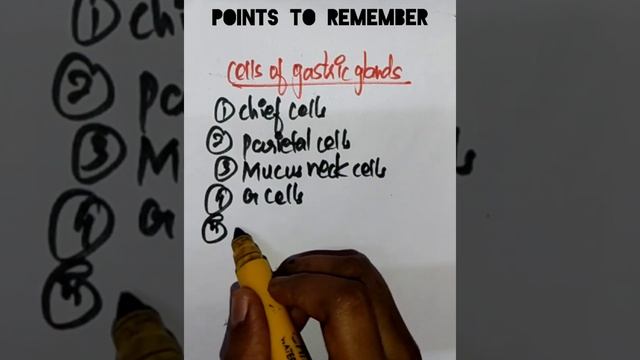 POINTS TO REMEMBER
cells of gastric glands
① chief cells
② parietal cells
③ Mucus neck cells
④ G cells
⑤